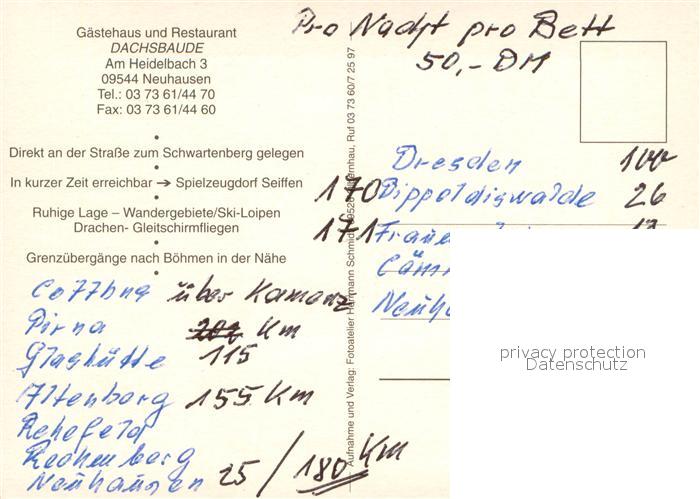 Gästehaus und Restaurant
DACHSBAUDE
Am Heidelbach 3
09544 Neuhausen
Tel.: 03 73 61/44 70
Fax: 03 73 61/44 60
Direkt an der Straße zum Schwartenberg gelegen
In kurzer Zeit erreichbar ➔ Spielzeugdorf Seiffen
Ruhige Lage – Wandergebiete/Ski-Loipen
Drachen- Gleitschirmfliegen
Grenzübergänge nach Böhmen in der Nähe
Cottbus über Kamenz
Pirna Km
Glashütte 115
Altenberg 155 Km
Rehefeld
Rechenberg
Neuhausen 25 / 180 Km
Aufnahme und Verlag: Fotoatelier Hermann Schmidt, Ruf 03 73 60/7 25 97
Pro Nacht pro Bett
50,- DM
Dresden 100
170 Dippoldiswalde 26
171 Fraue
Neuha
privacy protection
Datenschutz